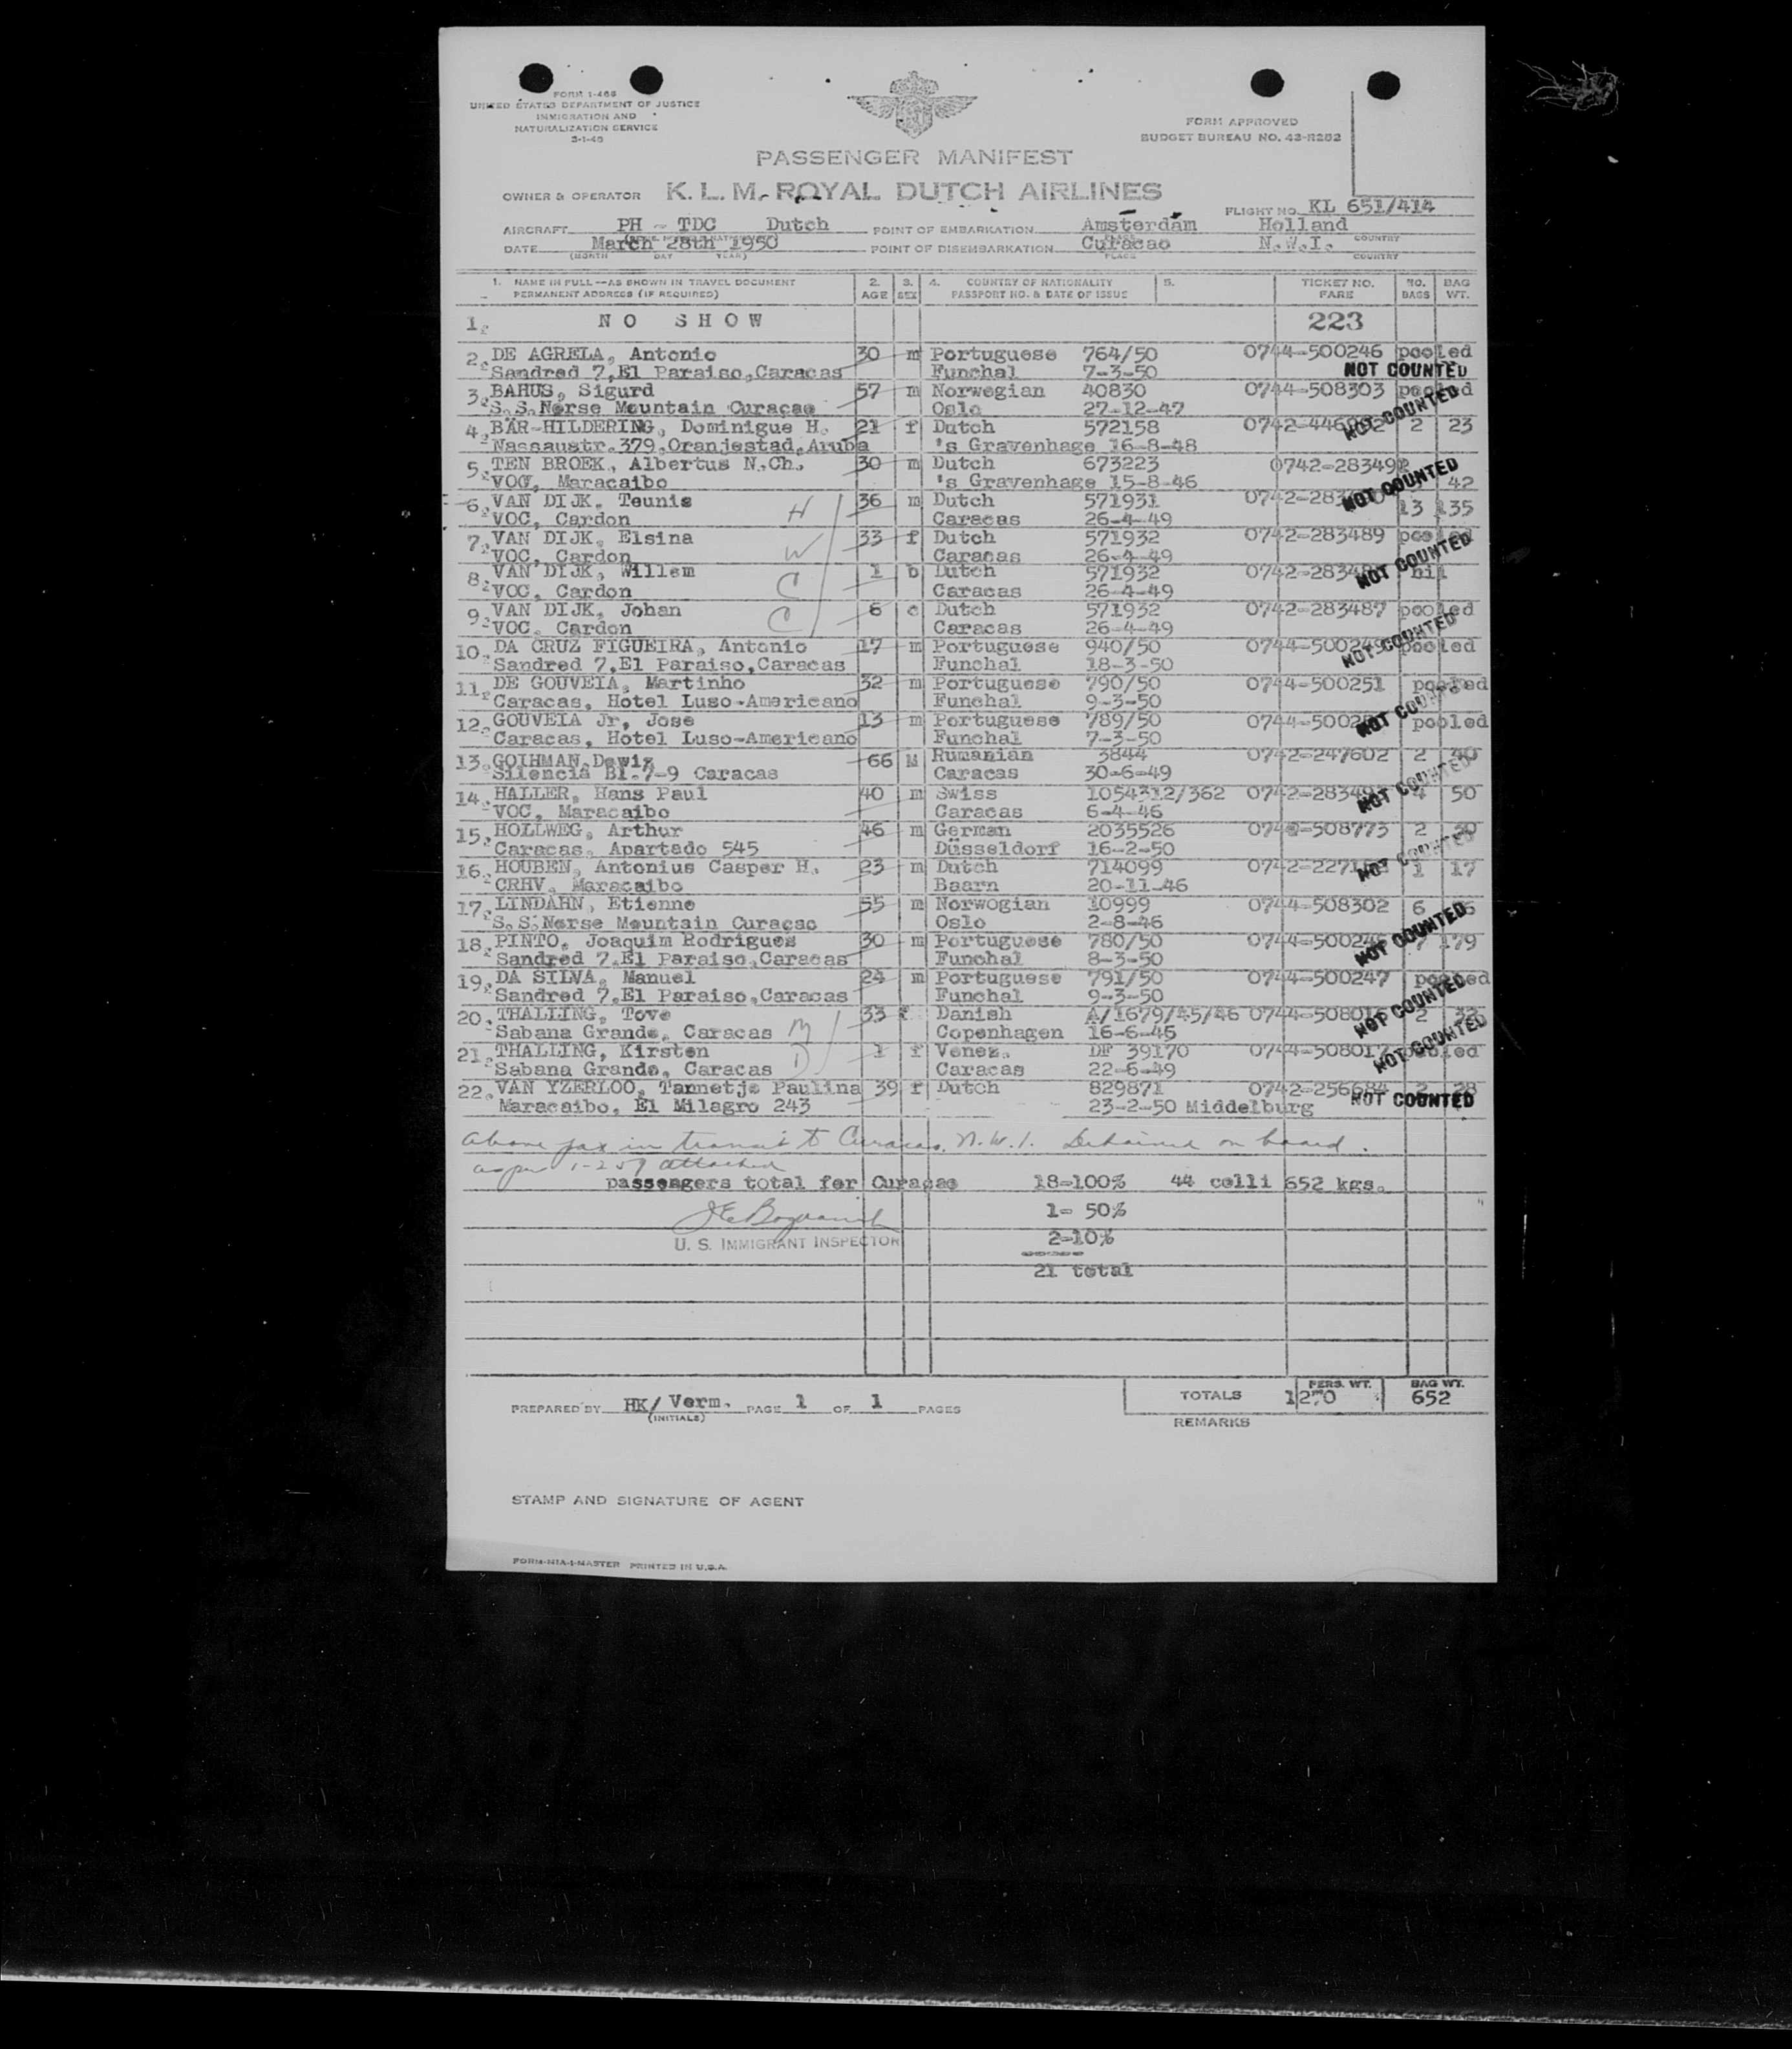 FORM I-466
UNITED STATES DEPARTMENT OF JUSTICE
IMMIGRATION AND
NATURALIZATION SERVICE
3-1-46
FORM APPROVED
BUDGET BUREAU NO. 43-R202
PASSENGER MANIFEST
OWNER & OPERATOR K. L. M. ROYAL DUTCH AIRLINES
FLIGHT NO. KL 651/414
AIRCRAFT PH - TDC Dutch POINT OF EMBARKATION Amsterdam Holland
DATE March 28th 1950 POINT OF DISEMBARKATION Curacao N.W.I. COUNTRY
(MONTH DAY YEAR) PLACE COUNTRY
1. NAME IN FULL--AS SHOWN IN TRAVEL DOCUMENT 2. 3. 4. COUNTRY OF NATIONALITY 5. TICKET NO. NO. BAG
PERMANENT ADDRESS (IF REQUIRED) AGE SEX PASSPORT NO. & DATE OF ISSUE FARE BAGS WT.
1. NO SHOW 223
2. DE AGRELA, Antonio 30 m Portuguese 764/50 0744-500246 pooled
Sandred 7,El Paraiso,Caracas Funchal 7-3-50 NOT COUNTED
3. BAHUS, Sigurd 57 m Norwegian 40830 0744-508303 pooled
S.S.Norse Mountain Curaçao Oslo 27-12-47 NOT COUNTED
4. BÄR-HILDERING, Dominigue H. 21 f Dutch 572158 2 23
Nassaustr.379,Oranjestad,Aruba 's Gravenhage 16-8-48
5. TEN BROEK, Albertus N.Ch. 30 m Dutch 673223 42
VOC, Maracaibo 's Gravenhage 15-8-46 NOT COUNTED
6. VAN DIJK, Teunis H 36 m Dutch 571931 13 135
VOC, Cardon Caracas 26-4-49
7. VAN DIJK, Elsina W 33 f Dutch 571932 0742-283489 pooled
VOC, Cardon Caracas 26-4-49 NOT COUNTED
8. VAN DIJK, Willem C 1 b Dutch 571932 nil
VOC, Cardon Caracas 26-4-49
9. VAN DIJK, Johan C 6 c Dutch 571932 0742-283487 pooled
VOC, Cardon Caracas 26-4-49 NOT COUNTED
10. DA CRUZ FIGUEIRA, Antonio 17 m Portuguese 940/50 pooled
Sandred 7,El Paraiso,Caracas Funchal 18-3-50
11. DE GOUVEIA, Martinho 32 m Portuguese 790/50 0744-500251 pooled
Caracas, Hotel Luso-Americano Funchal 9-3-50 NOT COUNTED
12. GOUVEIA Jr, Jose 13 m Portuguese 789/50 pooled
Caracas, Hotel Luso-Americano Funchal 7-3-50
13. GOIHMAN,Dewis 66 M Rumanian 3844 0742-247602 2 40
Silencia Bl.7-9 Caracas Caracas 30-6-49 NOT COUNTED
14. HALLER, Hans Paul 40 m Swiss 1054312/362 4 50
VOC, Maracaibo Caracas 6-4-46
15. HOLLWEG, Arthur 46 m German 2035526 2 30
Caracas, Apartado 545 Düsseldorf 16-2-50 NOT COUNTED
16. HOUBEN, Antonius Casper H. 23 m Dutch 714099 1 17
CRHV, Maracaibo Baarn 20-11-46
17. LINDAHN, Etienne 55 m Norwogian 10999 0744-508302 6
S.S.Norse Mountain Curaçao Oslo 2-8-46 NOT COUNTED
18. PINTO, Joaquim Rodrigues 30 m Portuguese 780/50 7 179
Sandred 7,El Paraiso,Caracas Funchal 8-3-50
19. DA SILVA, Manuel 24 m Portuguese 791/50 0744-500247 pooled
Sandred 7,El Paraiso,Caracas Funchal 9-3-50 NOT COUNTED
20. THALLING, Tove 33 f Danish A/1679/45/46 0744-508016 2 32
Sabana Grande, Caracas M Copenhagen 16-6-45 NOT COUNTED
21. THALLING, Kirsten 1 f Venez. DF 39170 0744-508017 pooled
Sabana Grande, Caracas D Caracas 22-6-49
22. VAN YZERLOO, Tannetje Paulina 39 f Dutch 829871 0742-256684 2 28
Maracaibo, El Milagro 243 23-2-50 Middelburg NOT COUNTED
above pax in transit to Curacao, N.W.I. Detained on board.
as per I-259 attached
passengers total for Curaçao 18-100% 44 colli 652 kgs.
1- 50%
U. S. IMMIGRANT INSPECTOR 2-10%
21 total
TOTALS PERS. WT. 1270 BAG WT. 652
PREPARED BY HK/ Verm. PAGE 1 OF 1 PAGES
(INITIALS)
REMARKS
STAMP AND SIGNATURE OF AGENT
FORM-NIA-1-MASTER PRINTED IN U.S.A.